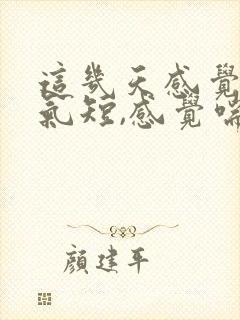 這幾天感覺
氣短,感覺喘
顏建平